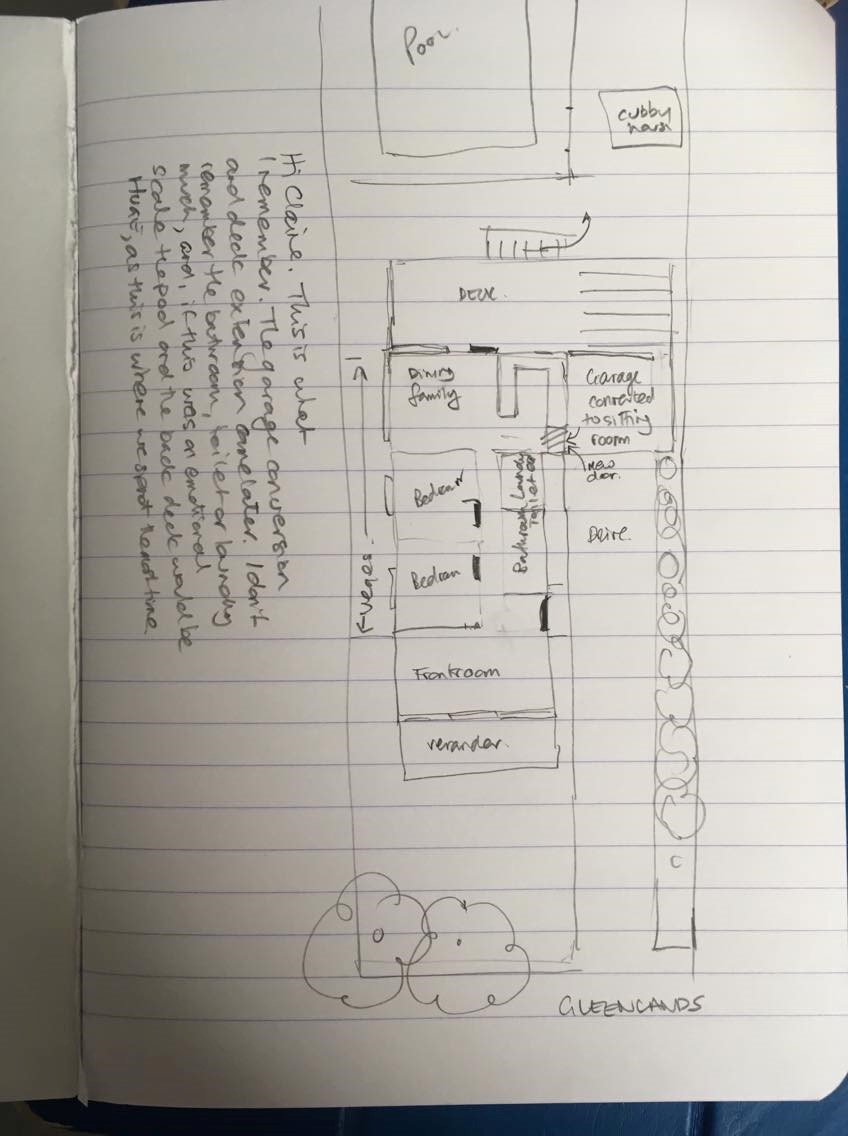 Pool.
cubby
DECK.
Dining
family
Garage
converted
to sitting
room
new
door.
Laundry
toilet
Bathroom
Bedroom
Bedroom
Drive.
Frontroom
verandar.
Hi Claire. This is what
I remember. The garage conversion
and deck extention came later. I don't
remember the bathroom, toilet or laundry
much, and, if this was an emotional
scale the pool and the back deck would be
HUGE, as this is where we spent the most time.